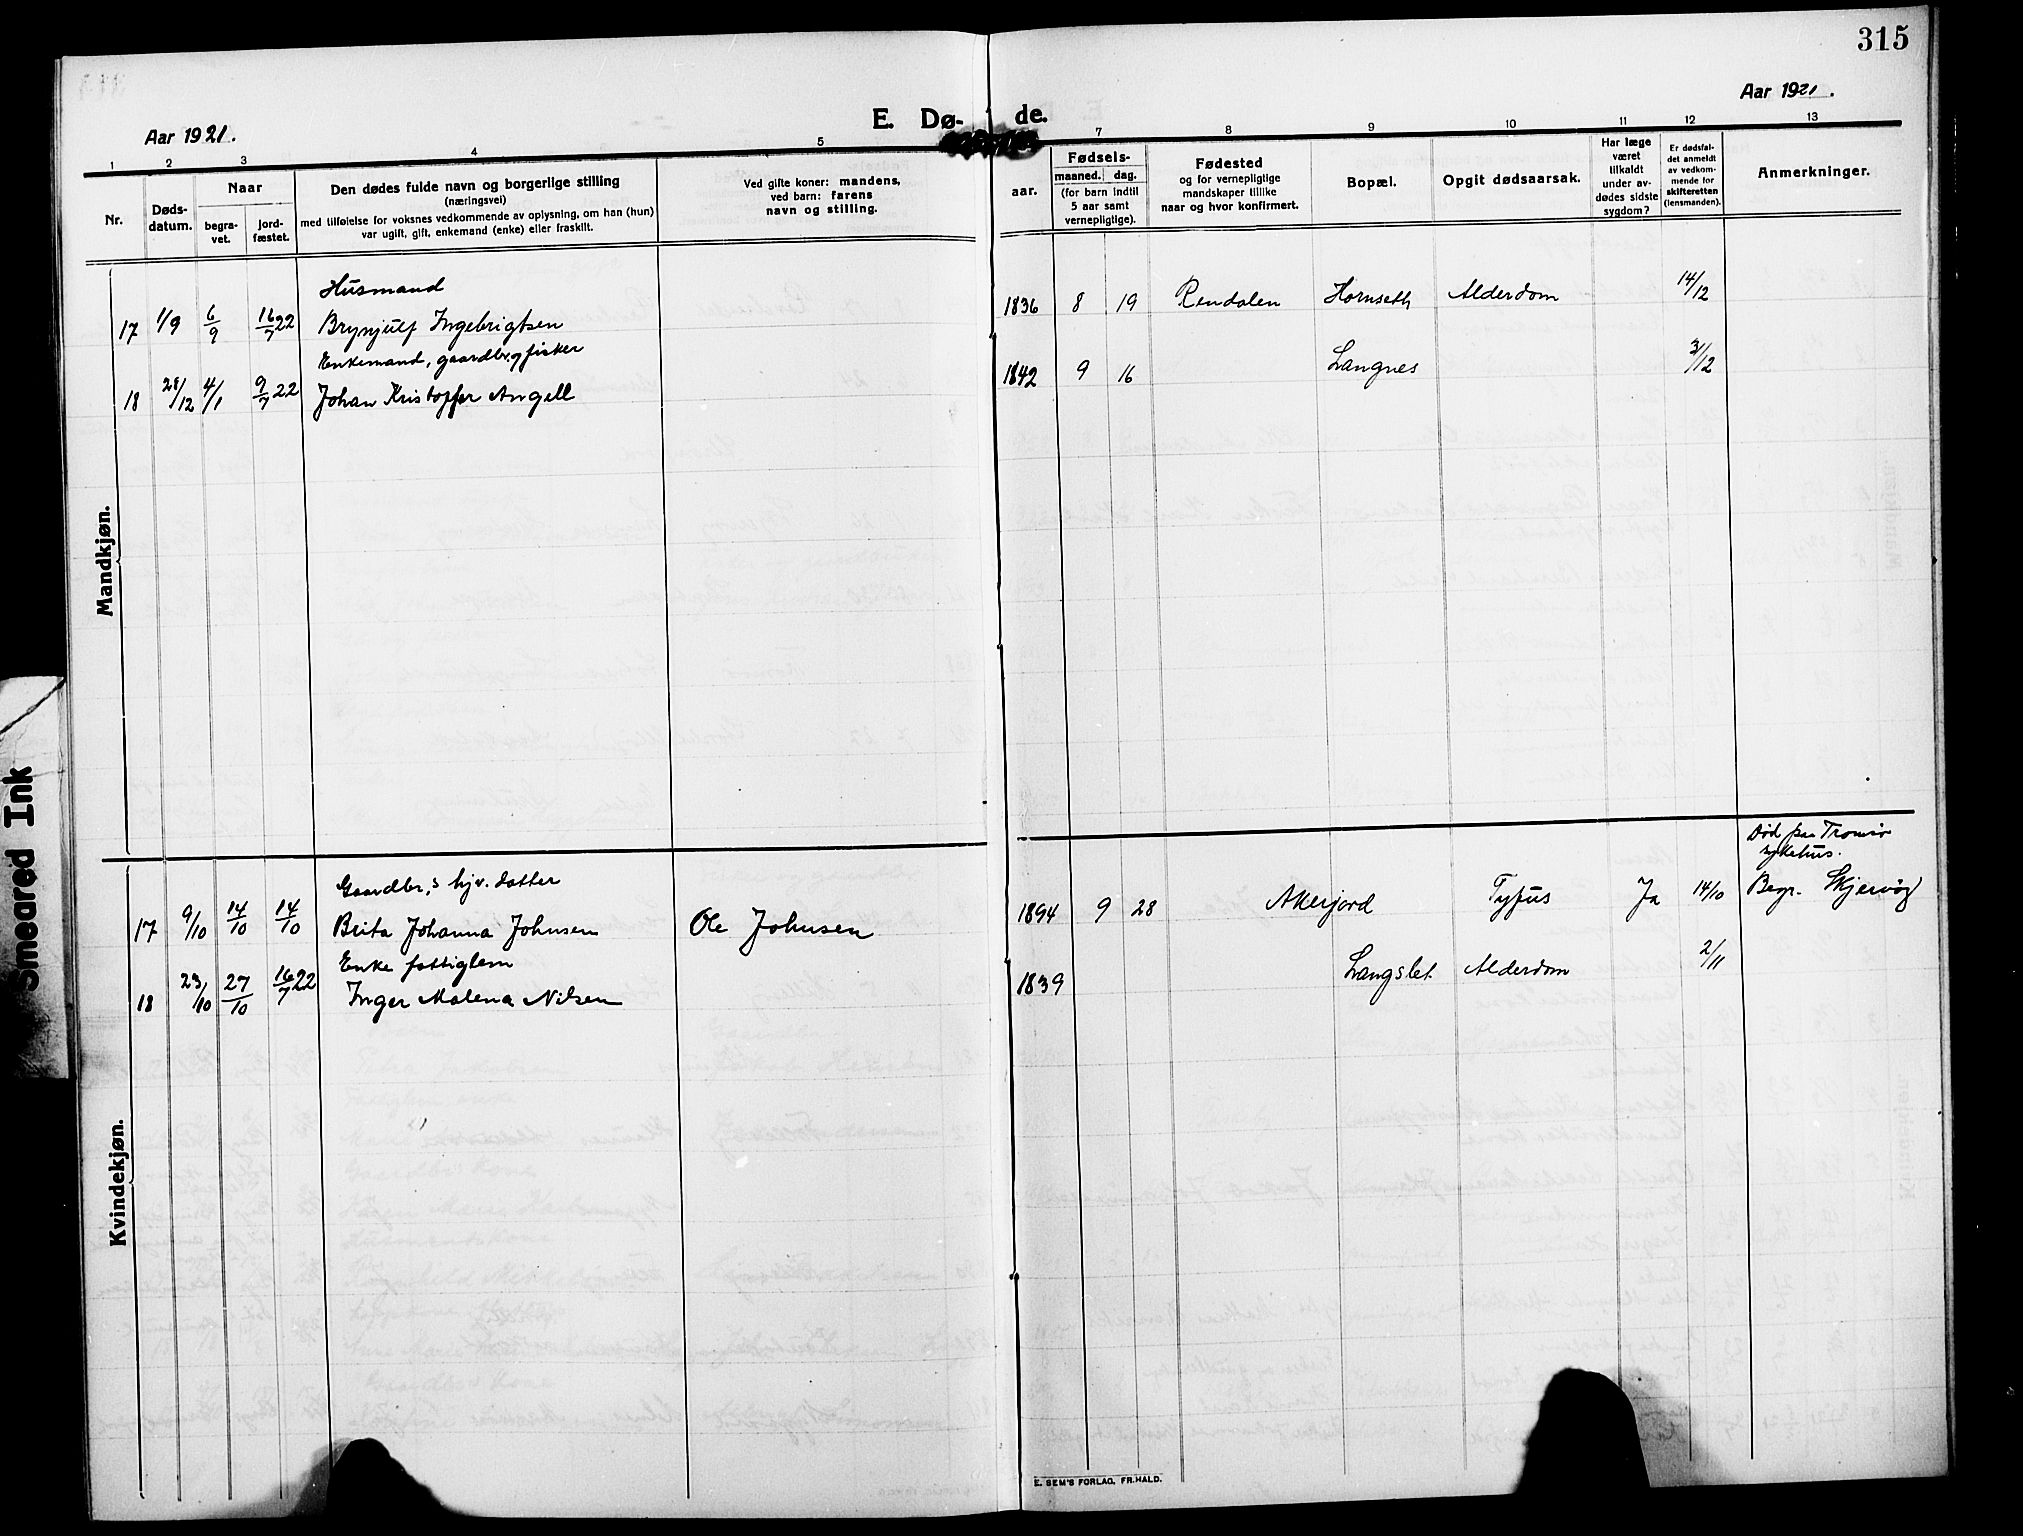 315
Aar 1921.
Aar 1921.
E. Dø-
de.
1 2 3 4 5 7 8 9 10 11 12 13
Nr.
Døds-
datum.
Naar
begra-
vet.
jord-
fæstet.
Den dødes fulde navn og borgerlige stilling
(næringsvei)
med tilføielse for voksnes vedkommende av oplysning, om han (hun)
var ugift, gift, enkemand (enke) eller fraskilt.
Ved gifte koner: mandens,
ved barn: farens
navn og stilling.
aar.
Fødsels-
maaned. dag.
(for barn indtil
5 aar samt
vernepligtige).
Fødested
og for vernepligtige
mandskaper tillike
naar og hvor konfirmert.
Bopæl.
Opgit dødsaarsak.
Har læge
været
tilkaldt
under av-
dødes sidste
sygdom?
Er dødsfal-
det anmeldt
av vedkom-
mende for
skifteretten
(lensmanden).
Anmerkninger.
Mandkjøn.
Husmand
17 1/9 6/9 16/7 22 Brynjulf Ingebrigtsen 1836 8 19 Rendalen Hornseth Alderdom 14/12
Enkemand, gaardbr. og fisker
18 28/12 4/1 9/7 22 Johan Kristoffer Angell 1842 9 16 Langnes 3/12
Kvindekjøn.
Død paa Tromsø
sykehus.
Gaardbr,s hjv. datter
17 9/10 14/10 14/10 Brita Johanna Johnsen Ole Johnsen 1894 9 28 Akerjord Tyfus Ja 14/10 Begr. Skjervøy
Enke fattiglem
18 23/10 27/10 16/7 22 Inger Malena Nilsen 1839 Langslet Alderdom 2/11
E. SEM'S FORLAG, FR.HALD.
Smeared Ink